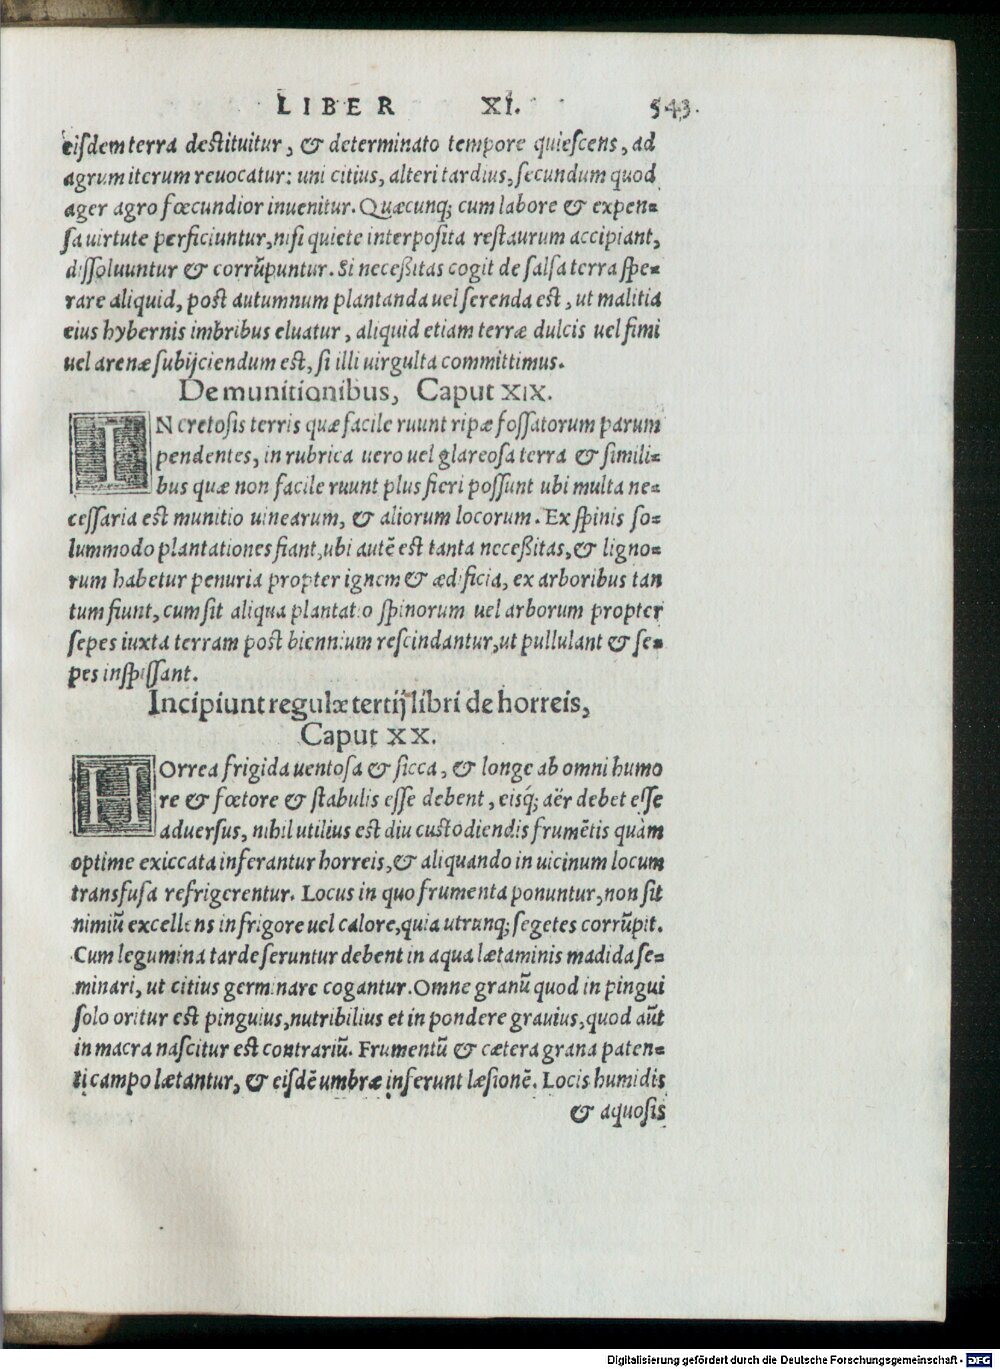 LIBER XI. 543.
eiſdem terra deſtituitur, & determinato tempore quieſcens, ad
agrum iterum reuocatur: uni citius, alteri tardius, ſecundum quod
ager agro fœcundior inuenitur. Quæcunq; cum labore & expen=
ſa uirtute perficiuntur, niſi quiete interpoſita reſtaurum accipiant,
diſſoluuntur & corrũpuntur. Si neceßitas cogit de ſalſa terra ſpe=
rare aliquid, poſt autumnum plantanda uel ſerenda eſt, ut malitia
eius hybernis imbribus eluatur, aliquid etiam terræ dulcis uel fimi
uel arenæ ſubijciendum eſt, ſi illi uirgulta committimus.
De munitionibus, Caput XIX.
IN cretoſis terris quæ facile ruunt ripæ foſſatorum parum
pendentes, in rubrica uero uel glareoſa terra & ſimili=
bus quæ non facile ruunt plus fieri poſſunt ubi multa ne=
ceſſaria eſt munitio uinearum, & aliorum locorum. Ex ſpinis ſo=
lummodo plantationes fiant, ubi autẽ eſt tanta neceßitas, & ligno=
rum habetur penuria propter ignem & ædificia, ex arboribus tan
tum fiunt, cum ſit aliqua plantatio ſpinorum uel arborum propter
ſepes iuxta terram poſt biennium reſcindantur, ut pullulant & ſe=
pes inſpiſſant.
Incipiunt regulæ tertij libri de horreis,
Caput XX.
HOrrea frigida uentoſa & ſicca, & longe ab omni humo
re & fœtore & ſtabulis eſſe debent, eisq́; aër debet eſſe
aduerſus, nihil utilius eſt diu cuſtodiendis frumẽtis quàm
optime exiccata inferantur horreis, & aliquando in uicinum locum
transfuſa refrigerentur. Locus in quo frumenta ponuntur, non ſit
nimiũ excellens in frigore uel calore, quia utrunq; ſegetes corrũpit.
Cum legumina tarde ſeruntur debent in aqua lætaminis madida ſe=
minari, ut citius germinare cogantur. Omne granũ quod in pingui
ſolo oritur eſt pinguius, nutribilius et in pondere grauius, quod aũt
in macra naſcitur eſt contrariũ. Frumentũ & cætera grana paten=
ti campo lætantur, & eiſdẽ umbræ inferunt læſionẽ. Locis humidis
& aquoſis
Digitalisierung gefördert durch die Deutsche Forschungsgemeinschaft - DFG